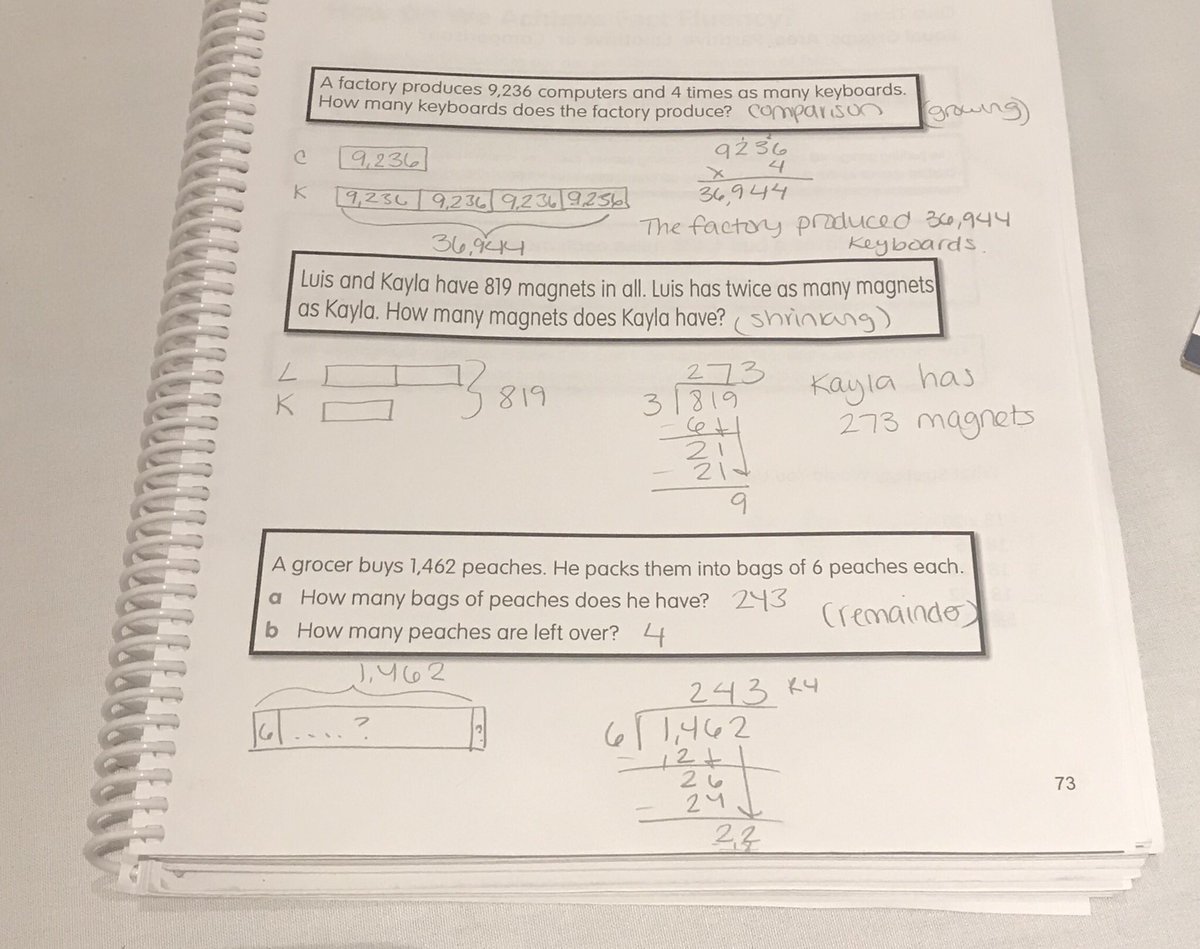 A factory produces 9,236 computers and 4 times as many keyboards.
How many keyboards does the factory produce? comparison (growing)
C 9,236
K 9,236 9,236 9,236 9,236
36,944
9236
x 4
36,944
The factory produced 36,944
keyboards.
Luis and Kayla have 819 magnets in all. Luis has twice as many magnets
as Kayla. How many magnets does Kayla have? (shrinking)
L
K
819
273
3 819
- 6
21
- 21
9
Kayla has
273 magnets
A grocer buys 1,462 peaches. He packs them into bags of 6 peaches each.
a How many bags of peaches does he have? 243
(remainder)
b How many peaches are left over? 4
1,462
6 .... ? ?
243 R4
6 1,462
- 12
26
- 24
22
73